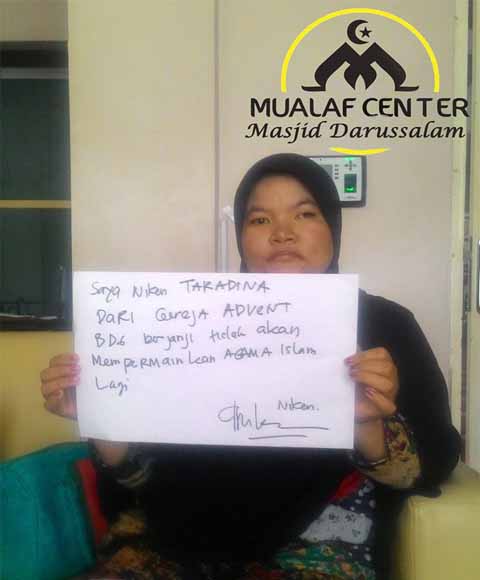 MUALAF CENTER
Masjid Darussalam
Saya Niken TARADINA
DARI Gereja ADVENT
BDG berjanji tidak akan
MemperMainkan AGAMA Islam
Lagi
Niken.